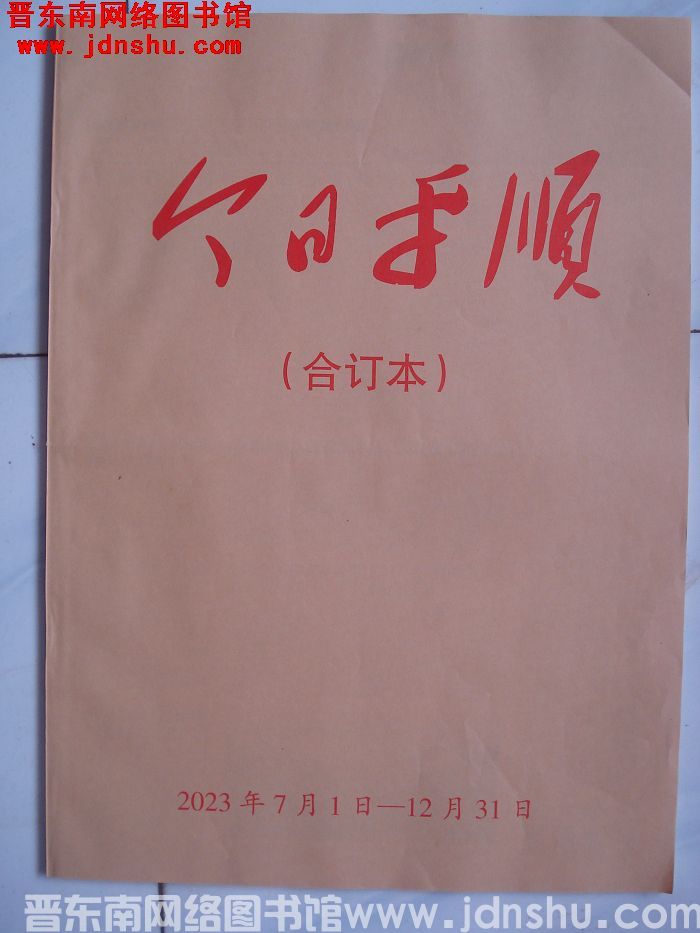 晋东南网络图书馆
www.jdnshu.com
今日平順
（合订本）
2023年7月1日—12月31日
晋东南网络图书馆www.jdnshu.com